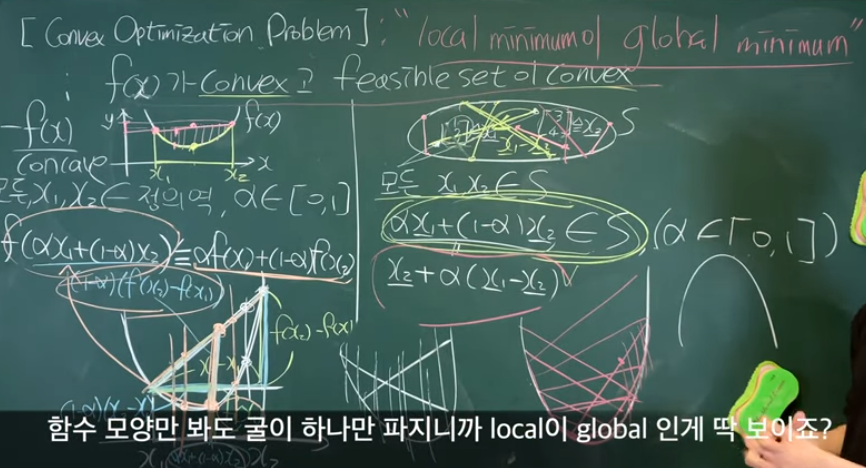 [Convex Optimization Problem] : "local minimum이 global minimum"
: f(x)가 Convex고 feasible set이 convex
-f(x)
concave
y
f(x)
x₁ x₂ x
S
모든 x₁, x₂ ∈ 정의역, α ∈ [0,1]
모든 x₁, x₂ ∈ S
f(αx₁+(1-α)x₂) ≤ αf(x₁)+(1-α)f(x₂)
αx₁+(1-α)x₂ ∈ S (α ∈ [0,1])
x₂+α(x₁-x₂)
(1-α)(f(x₂)-f(x₁))
f(x₂)-f(x₁)
함수 모양만 봐도 굴이 하나만 파지니까 local이 global 인게 딱 보이죠?